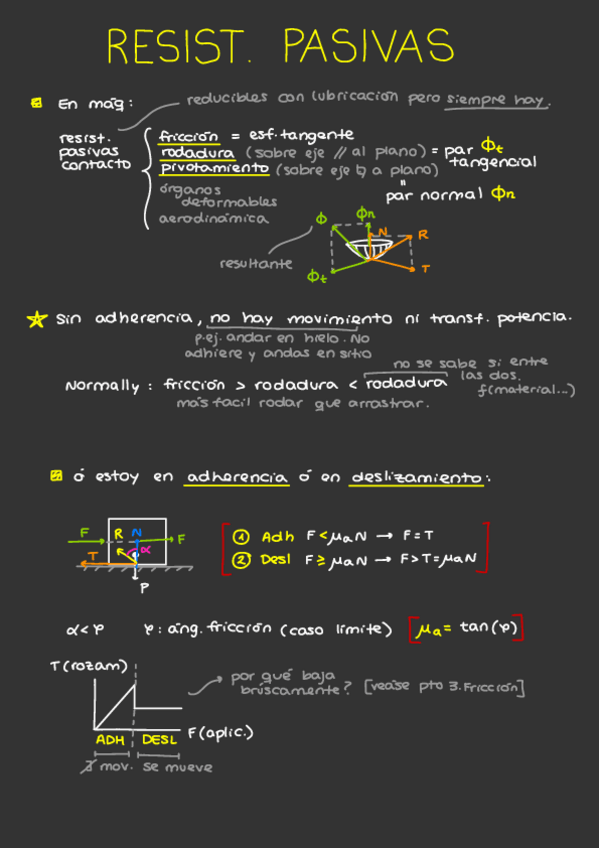 RESIST. PASIVAS
En máq:
reducibles con lubricación pero siempre hay.
resist. pasivas contacto
fricción = esf. tangente
rodadura (sobre eje // al plano) = par Φt tangencial
pivotamiento (sobre eje ⊥ a plano)
par normal Φn
órganos deformables
aerodinámica
Φ Φn N R
resultante
Φt T
Sin adherencia, no hay movimiento ni transf. potencia.
p.ej. andar en hielo. No
adhiere y andas en sitio
no se sabe si entre
las dos.
Normally: fricción > rodadura < rodadura
f(material...)
más facil rodar que arrastrar.
ó estoy en adherencia ó en deslizamiento:
F R N F
α
T
P
① Adh F < μaN → F = T
② Desl F ≥ μaN → F > T = μaN
α < φ φ: áng. fricción (caso límite) [μa = tan(φ)]
T (rozam)
por qué baja
brúscamente? [vease pto 3. Fricción]
ADH DESL F (aplic.)
∄ mov. se mueve